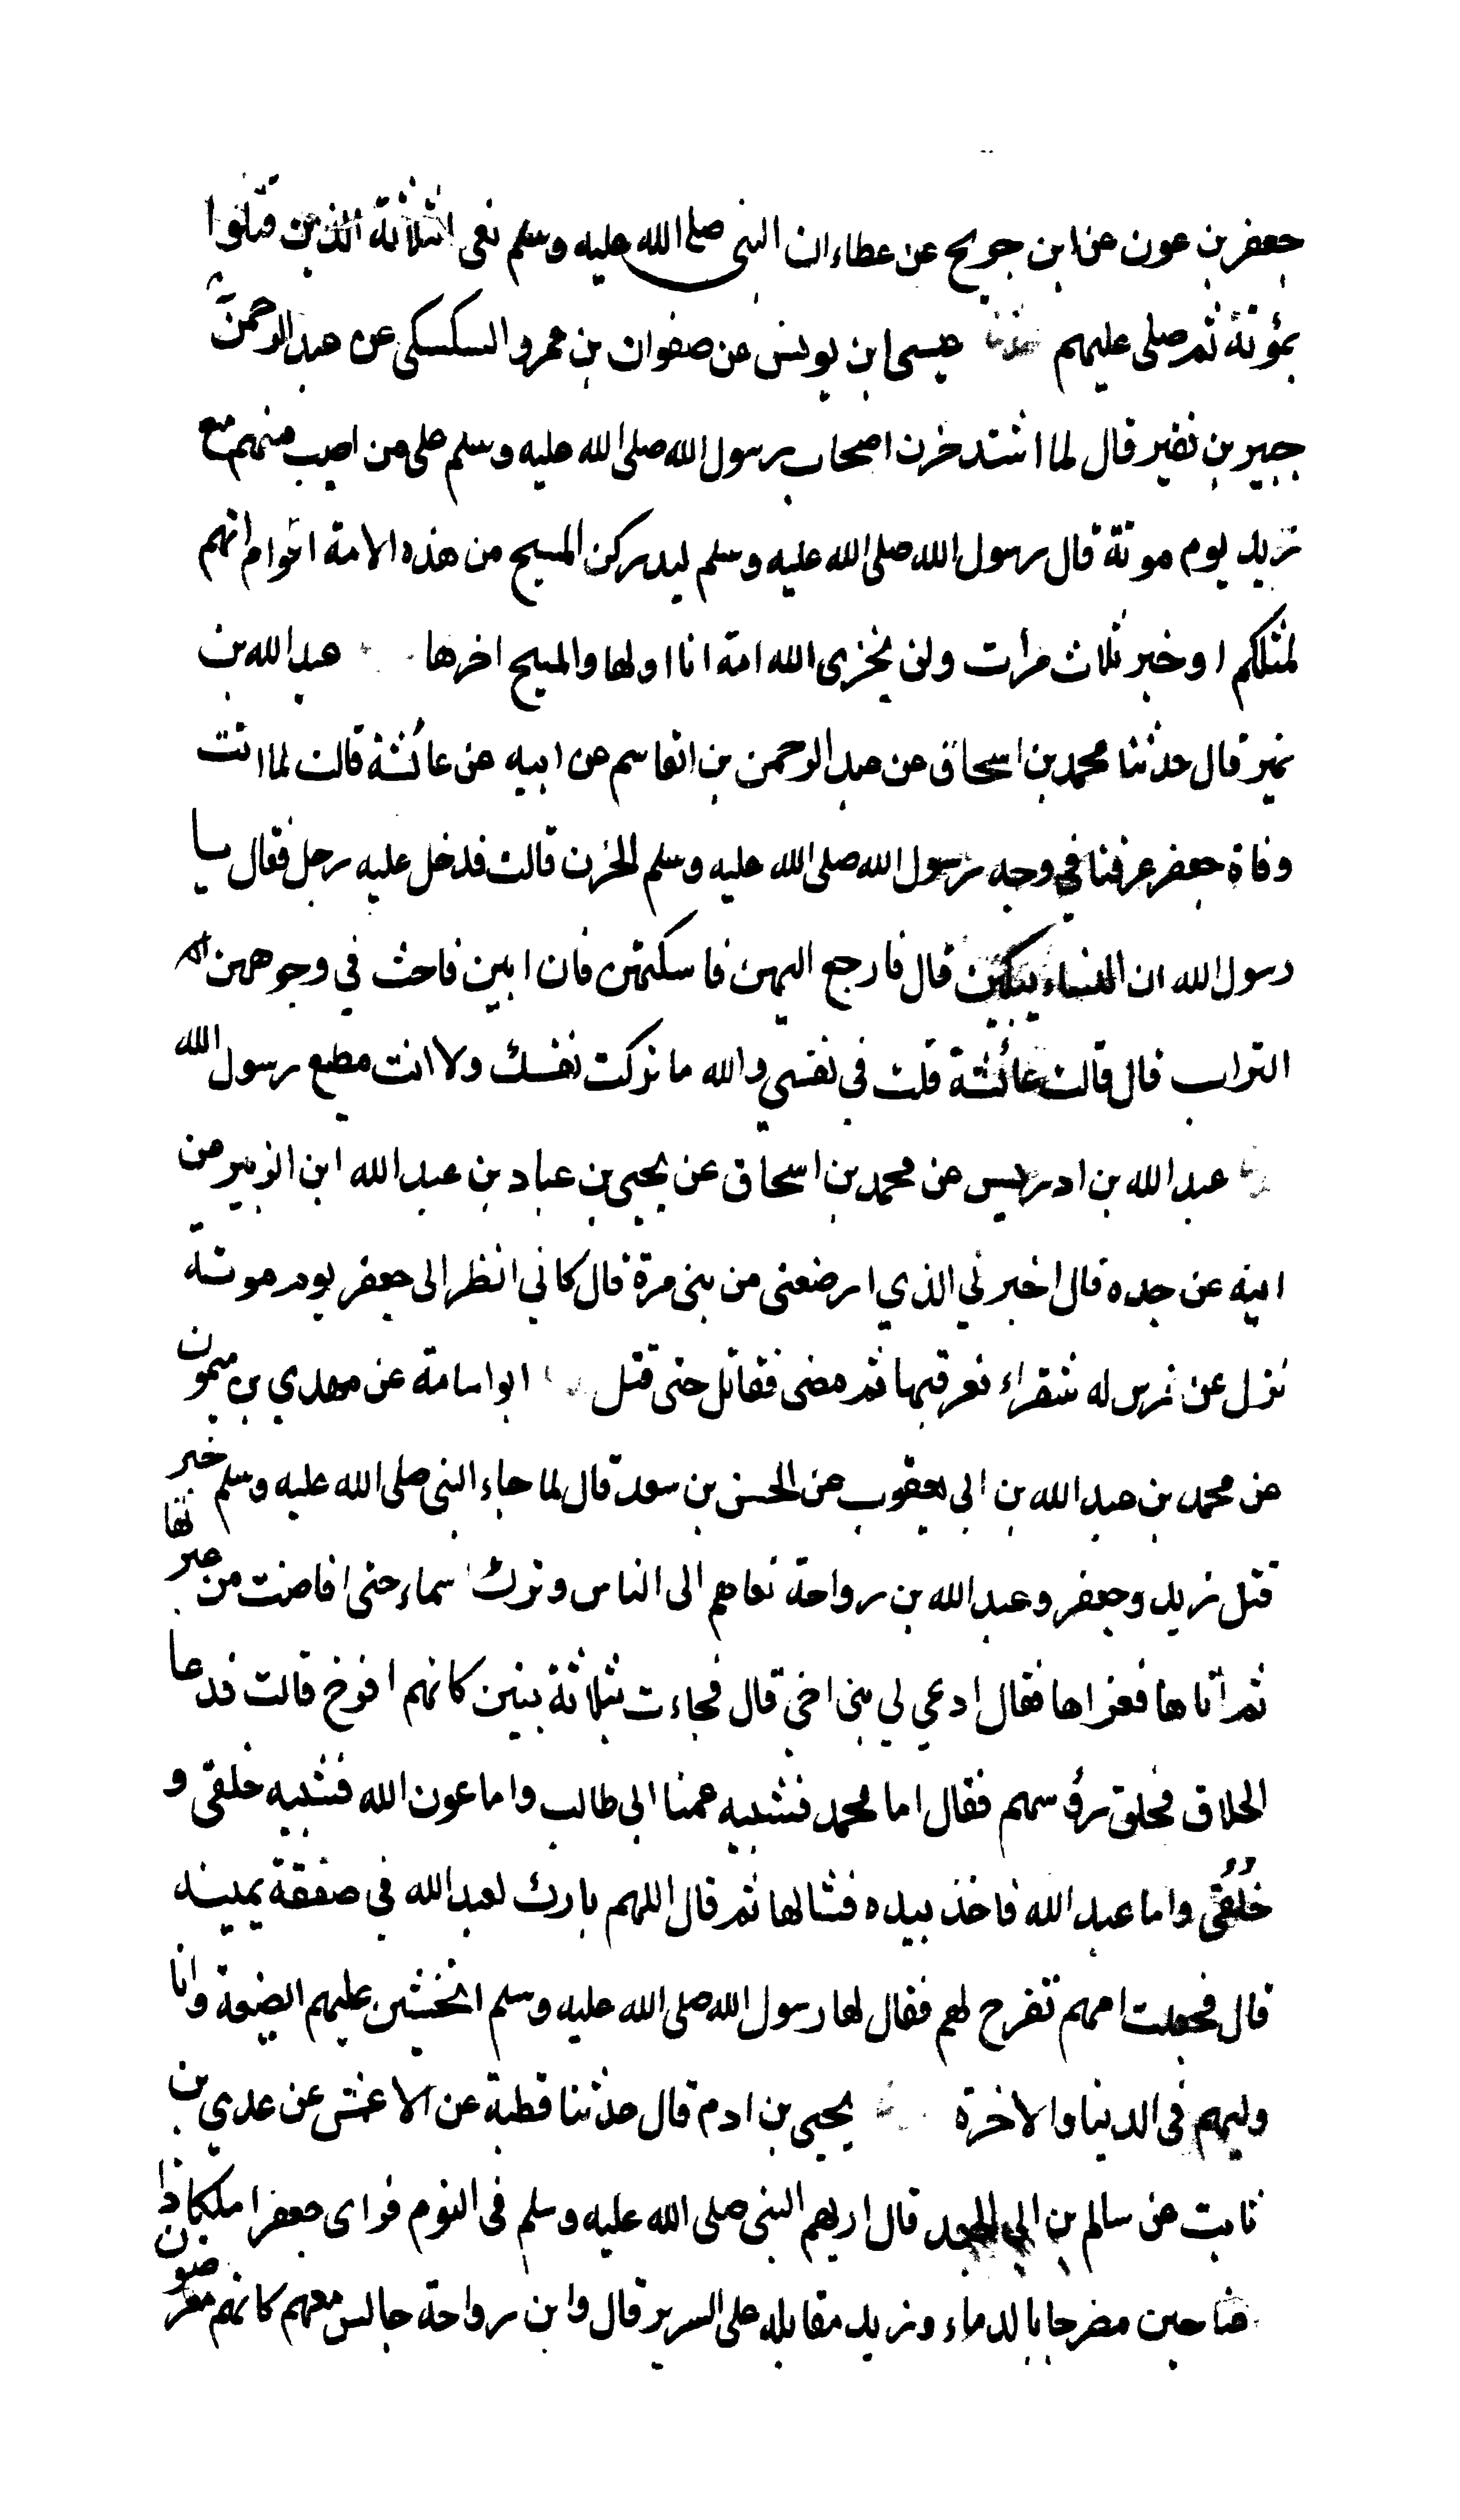 جعفر بن عون عن ابن جريج عن عطاء ان النبى صلى الله عليه وسلم نعى الثلاثة الذين قتلوا
بمؤتة ثم صلى عليهم حدثنا عيسى ابن يونس عن صفوان بن عمرو السكسكى عن عبد الرحمن بن
جبير بن نفير قال لما اشتد حزن اصحاب رسول الله صلى الله عليه وسلم على من اصيب منهم مع
زيد يوم موتة قال رسول الله صلى الله عليه وسلم ليدركن المسيح من هذه الامة اقوام انهم
لمثلكم او خير ثلاث مرات ولن يخزى الله امة انا اولها والمسيح اخرها عبد الله بن
نمير قال حدثنا محمد بن اسحاق عن عبد الرحمن بن القاسم عن ابيه عن عائشة قالت لما اتت
وفاة جعفر عرفنا في وجه رسول الله صلى الله عليه وسلم الحزن قالت فدخل عليه رجل فقال يا
رسول الله ان النساء يبكين قال فارجع اليهن فاسكتهن فان ابين فاحث في وجوههن
التراب قال قالت عائشة قلت في نفسي والله ما تركت نفسك ولا انت مطيع رسول الله
عبد الله بن ادريس عن محمد بن اسحاق عن يحيى بن عباد بن عبد الله ابن الزبير عن
ابيه عن جده قال اخبرني الذي ارضعنى من بنى مرة قال كاني انظر الى جعفر يوم موتة
نزل عن فرس له شقراء فعرقبها ثم مضى فقاتل حتى قتل ابو اسامة عن مهدي بن ميمون
عن محمد بن عبد الله بن ابى يعقوب عن الحسن بن سعد قال لما جاء النبى صلى الله عليه وسلم خبر
قتل زيد وجعفر وعبد الله بن رواحة نعاهم الى الناس وترك اسماء حتى افاضت من عبرتها
ثم اتاها فعزاها فقال ادعي لي بنى اخي قال فجاءت بثلاثة بنين كانهم افرخ قالت فدعا
الحلاق فحلق رؤسهم فقال اما محمد فشبيه عمنا ابى طالب واما عون الله فشبيه خلقى و
خُلُقى واما عبد الله فاخذ بيده فشالها ثم قال اللهم بارك لعبد الله في صفقة يمينه
قال فجعلت امهم تفرح لهم فقال لها رسول الله صلى الله عليه وسلم اتخشين عليهم الضيعة وانا
وليهم فى الدنيا والاخرة يحيى بن ادم قال حدثنا قطبة عن الاعمش عن عدي بن
ثابت عن سالم بن ابى الجعد قال اريهم النبى صلى الله عليه وسلم فى النوم فراى جعفرا ملكا ذا
جناحين مضرجا بالدماء وزيد مقابله على السرير قال وابن رواحة جالس معهم كانهم معرضون